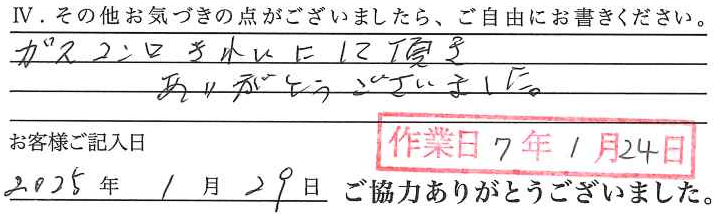 Ⅳ．その他お気づきの点がございましたら、ご自由にお書きください。
ガスコンロきれいにして頂き
ありがとうございました。
お客様ご記入日
作業日 7年1月24日
2025年1月29日 ご協力ありがとうございました。